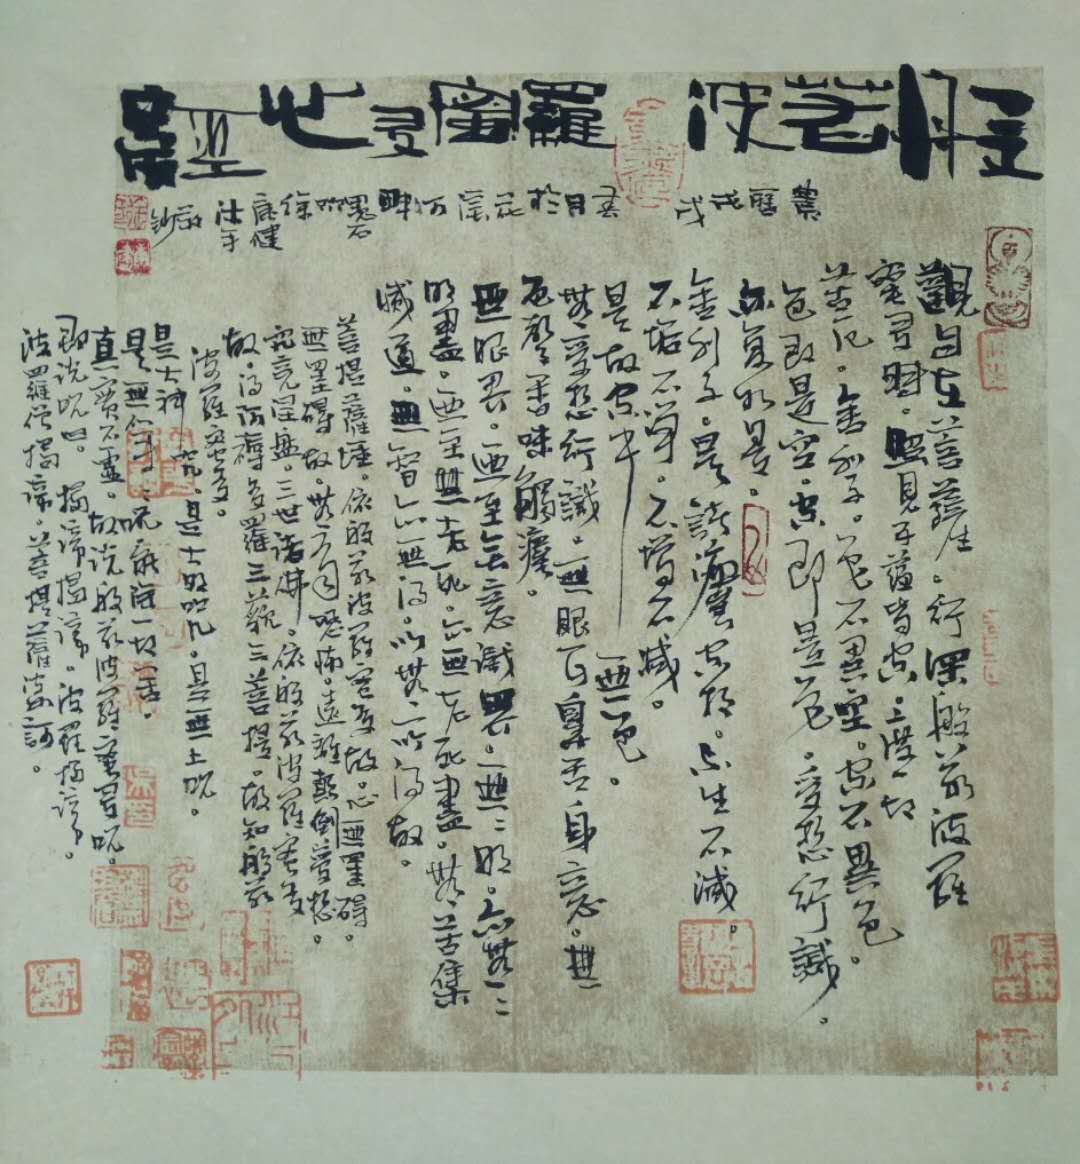 般若波羅蜜多心經
農曆戊戌月於花溪河畔墨石吟徐健沐手敬鈔
觀自在菩薩。行深般若波羅
蜜多時。照見五蘊皆空。度一切
苦厄。舍利子。色不異空。空不異色。
色即是空。空即是色。受想行識。
亦复如是。
舍利子。是諸法空相。不生不滅。
不垢不淨。不增不減。
是故空中無色。
無受想行識。無眼耳鼻舌身意。無
色聲香味觸法。
無眼界。無至無意識界。無〻明。亦無〻
明盡。無至無老死。亦無老死盡。無苦集
滅道。無智亦無得。以無所得故。
菩提薩埵。依般若波羅蜜多故。心無罣碍。
無罣碍故。無有恐怖。遠離顛倒夢想。
究竟涅盤。三世諸佛。依般若波羅蜜多
故。得阿耨多羅三藐三菩提。故知般若
波羅蜜多。
是大神咒。是大明咒。是無上呪。
是無等〻呪。能除一切苦。
真實不虛。故說般若波羅蜜多呪。
即說呪曰。揭諦揭諦。波羅揭諦。
波羅僧揭諦。菩提薩婆訶。